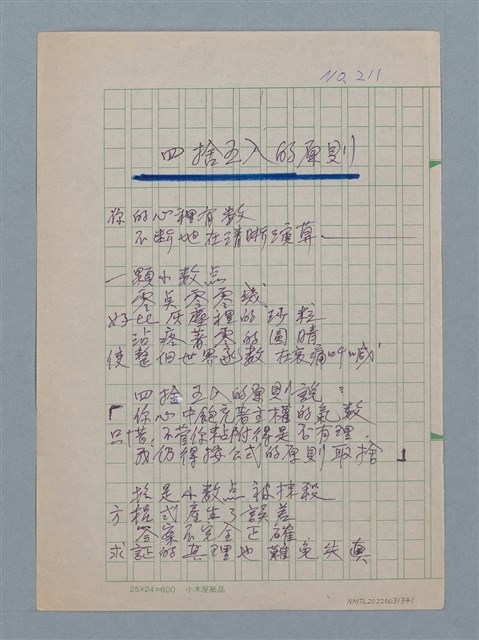 NO. 211
四捨五入的原則
你的心裡有数
不断地在清晰演算
一顆小数点
零点零零幾
好比灰塵裡的沙粒
沾疼著零的圓睛
使整個世界函数在哀痛呼喊
四捨五入的原則說：
「你心中飽充著主權的氣数
只惜不管你粘附得是否有理
我仍得按公式的原則取捨」
於是小数点被抹殺
方程式產生了誤差
答案不完全正確
求証的真理也難免失真
25×24=600 小木屋紙品
NMTL20220031341